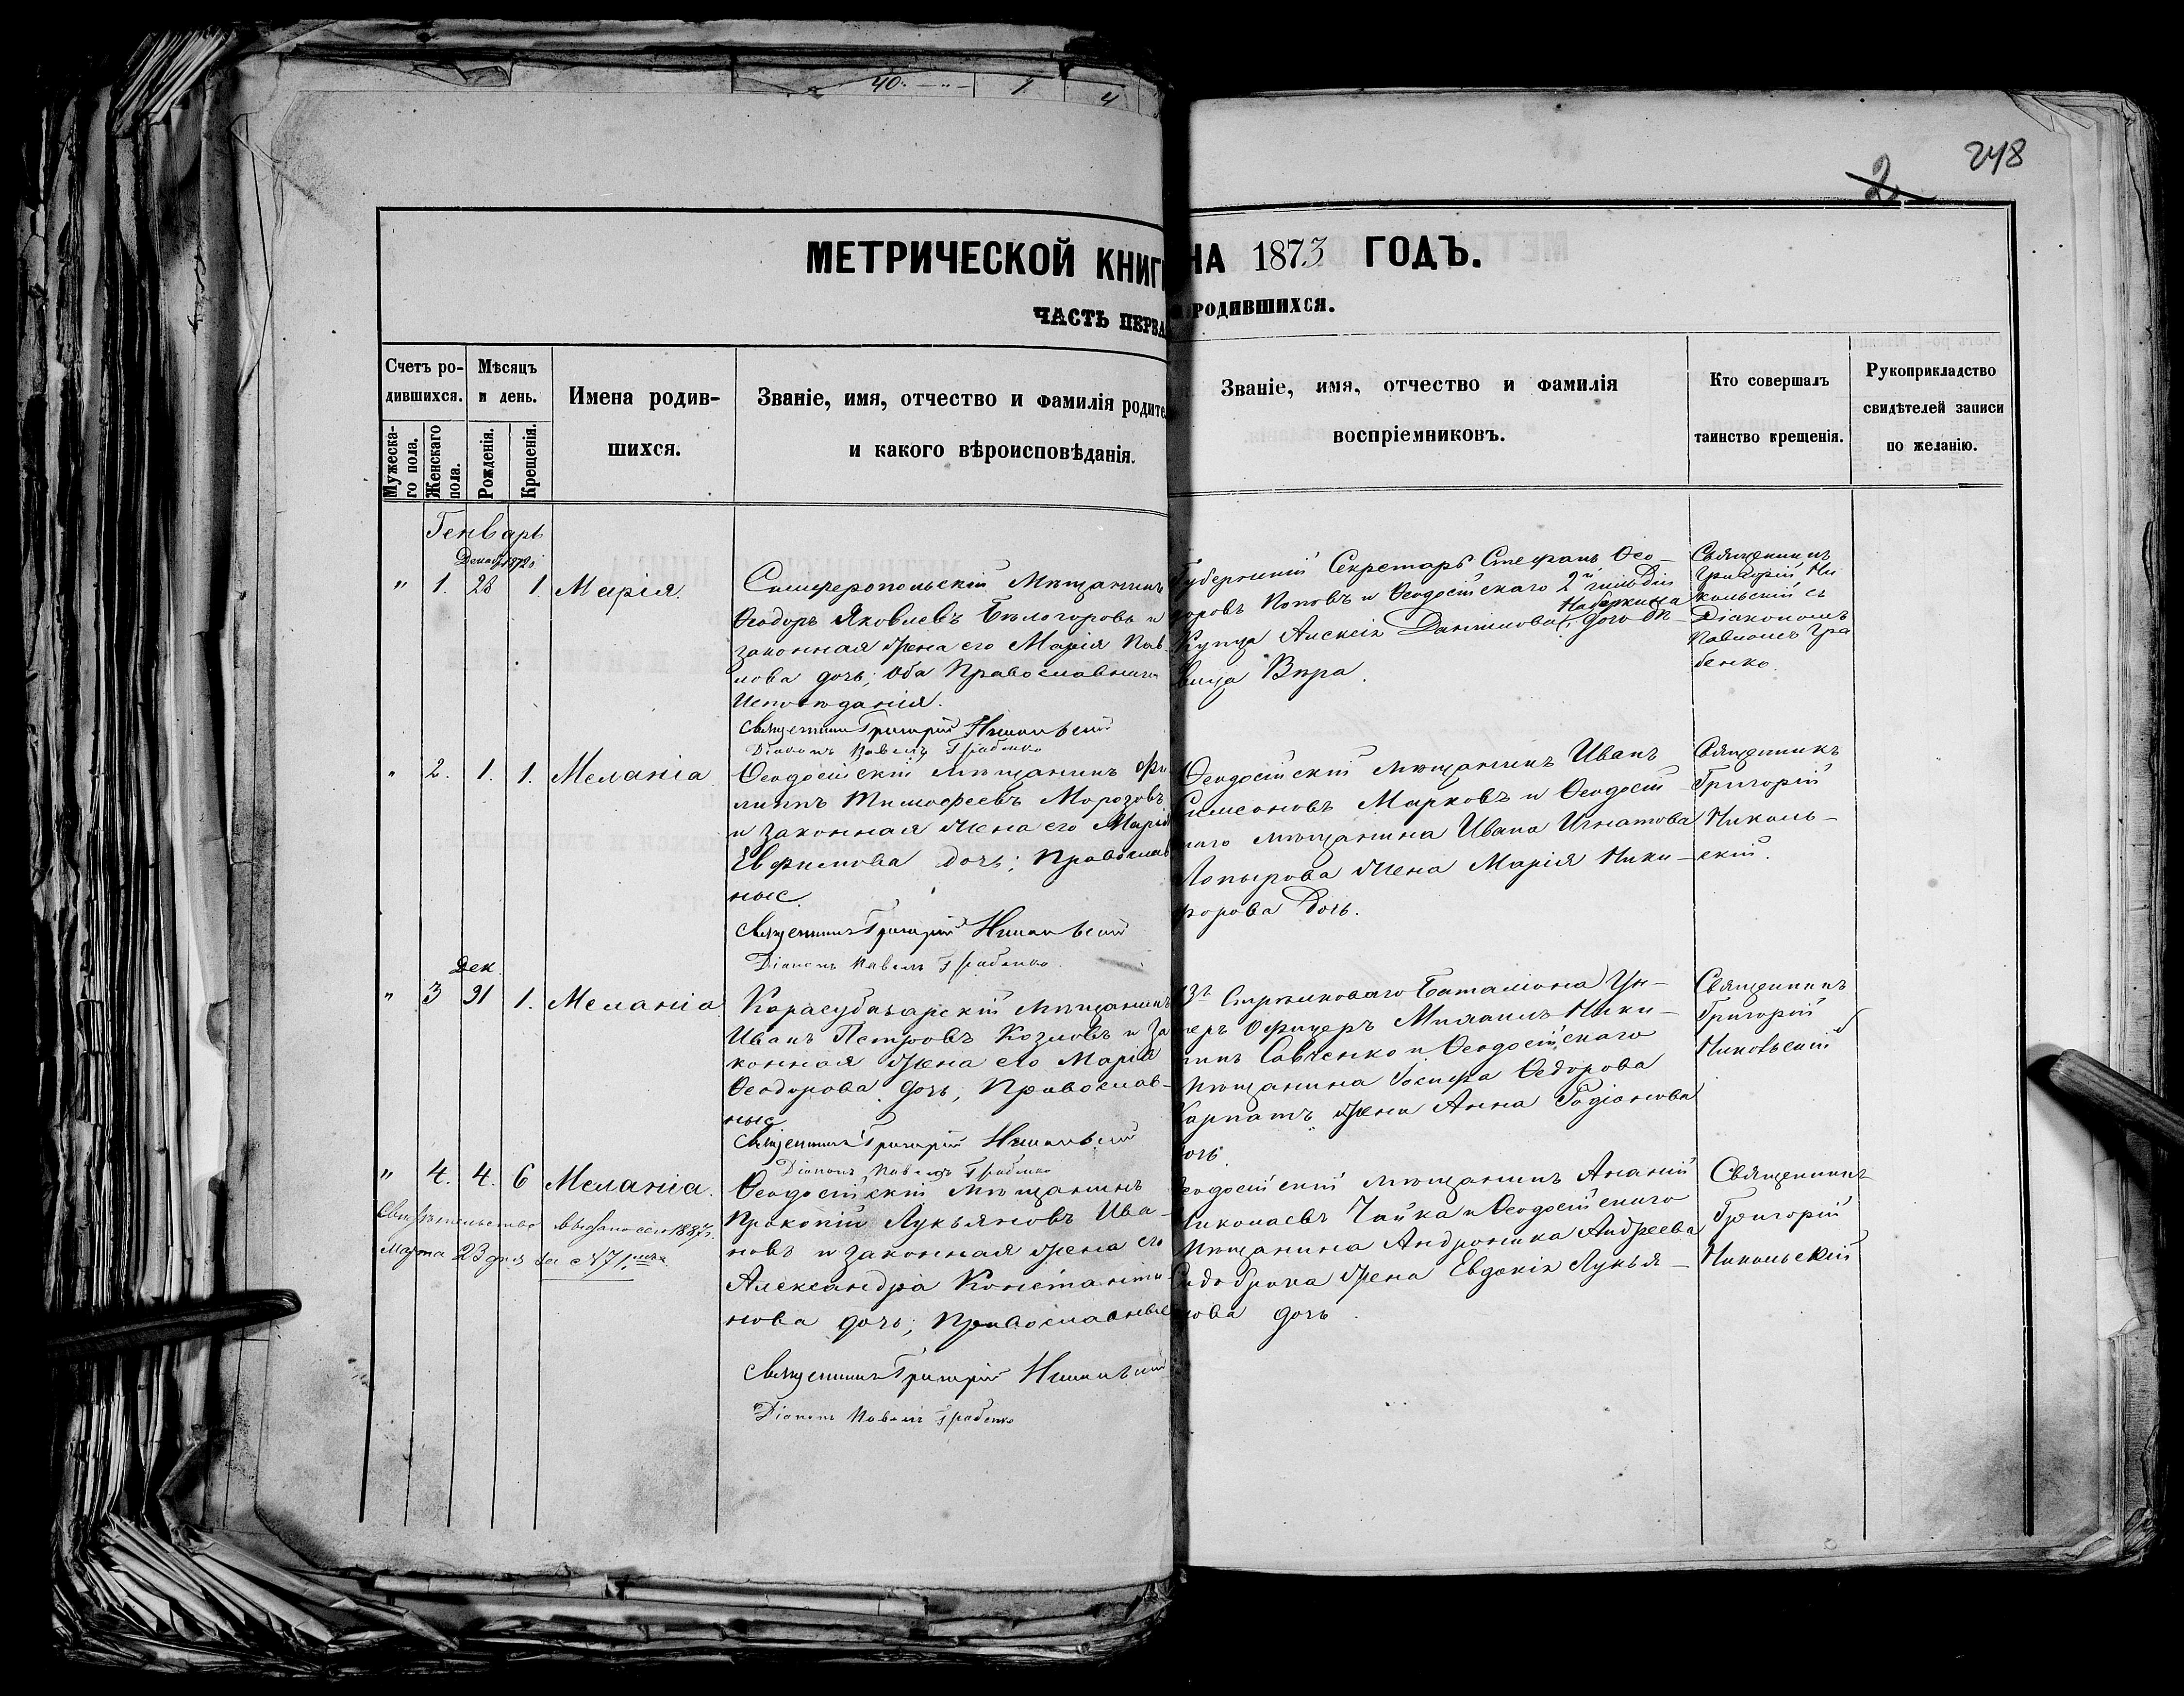 40. — „ — 1 4
2
248
МЕТРИЧЕСКОЙ КНИГ НА 1873 ГОДЪ.
ЧАСТЬ ПЕРВА РОДИВШИХСЯ.
Счетъ ро-
дившихся.
Мужеска-
го пола.
Женскаго
пола.
Мѣсяцъ
и день.
Рожденія.
Крещенія.
Имена родив-
шихся.
Званіе, имя, отчество и фамилія родите
и какого вѣроисповѣданія.
Званіе, имя, отчество и фамилія
воспріемниковъ.
Кто совершалъ
таинство крещенія.
Рукоприкладство
свидѣтелей записи
по желанію.
Генварь
Декабр. 1872
„ 1. 28 1. Марія.
Симферопольскій Мѣщанинъ
Ѳеодоръ Яковлевъ Бѣлогоровъ и
законная жена его Марія Пав-
лова дочь; Оба Православнаго
Исповѣданія.
Священникъ Григорій Никольскій
Діаконъ Павелъ Грабенко
Губернскій Секретарь Стефанъ Ѳео-
доровъ Поповъ и Ѳеодосійскаго 2й гильдіи
Купца Алексія Данилова дочь дѣ-
вица Вѣра.
Священникъ
Григорій Ни
кольскій съ
Діакономъ
Павломъ Гра
бенко.
„ 2. 1. 1. Меланія
Ѳеодосійскій мѣщанинъ Фи-
липпъ Тимофеевъ Морозовъ
и законная жена его Марія
Евфимова дочь; Православ
ные.
Священникъ Григорій Никольскій
Діаконъ Павелъ Грабенко.
Ѳеодосійскій мѣщанинъ Иванъ
Симеоновъ Марковъ и Ѳеодосій-
каго мѣщанина Ивана Игнатова
Лопырова жена Марія Ники-
форова дочь.
Священникъ
Григорій
Николь-
скій.
Дек.
„ 3 31 1. Меланіа
Карасубазарскій мѣщанинъ
Иванъ Петровъ Козловъ и За
конная жена его Марія
Ѳеодорова дочь; Православ-
ные
Священникъ Григорій Никольскій
Діаконъ Павелъ Грабенко
Стрѣлковаго Баталіона Ун-
теръ Офицеръ Михаилъ Ники-
тинъ Савченко и Ѳеодосійскаго
мѣщанина Іосифа Ѳедорова
Карпатъ жена Анна Родіонова
дочь.
Священникъ
Григорій
Никольскій
„ 4. 4. 6 Меланіа.
Свидѣтельство выдано 1887г.
Марта 23 дня за №71.
Ѳеодосійскій мѣщанинъ
Прокопій Лукьяновъ Ива-
новъ и законная жена его
Александра Константи-
нова дочь; Православные
Священникъ Григорій Никольскій
Діаконъ Павелъ Грабенко
еодосійскій мѣщанинъ Ананій
Николаевъ Чайка и Ѳеодосійскаго
мѣщанина Андроника Андреева
жена Евдокія Лукья-
нова дочь.
Священникъ
Григорій
Никольскій